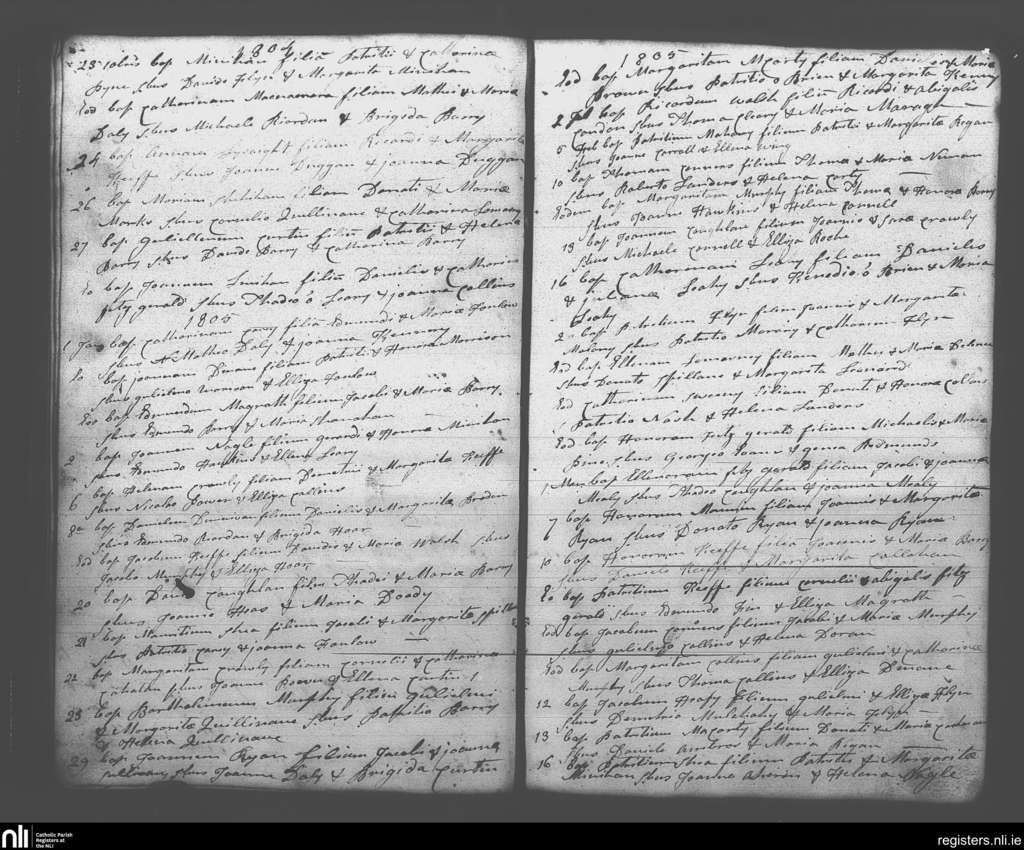 1804
23 bap Minihan filiũ Patritii & Catherina
Ryne Spbus Davide Flyn & Margarita Minihan
Eod bap Catherinam Macnamara filiam Mathei & Maria
Daly Spbus Michaele Riordan & Brigida Barry
24 bap filiam Ricardi & Margarita
Keiffe Spbus Joanne Duggan & Joanna Duggan
26 bap Mariam filiam Donati & Maria
Spbus Cornelio Quillinane & Catharina
27 bap Gulielmum Curtin filiũ Patritii & Helena
Barry Spbus Davide Barry & Catharina Barry
Eo bap Joannem Linehan filiũ Danielis & Catharina
fitz gerald Spbus Thadeo o Leary & Joanna Collins
1805
1 Jan bap Catharinam Carey filiã Edmundi & Maria Hanlon
Spbus Mattheo Daly & Joanna Kenny
Eo bap Joannem filium Patritii & Honora Morrison
Spbus Gulielmo Noonan & Elliza
Eod bap Edmundum Magrath filium Jacobi & Maria Barry
Spbus Edmundo Barry & Maria Shanahan
2 bap Joannem Nagle filium Gerardi & Honora Minihan
Spbus Edmundo Hawkins & Ellena Leary
6 bap Helenam Crowly filiam Demetrii & Margarita Keiffe
Spbus Nicolao Power & Elliza Collins
8 bap Danielem Donnivan filium Danielis & Margarita Riordan
Spbus Edmundo Riordan & Brigida Hoar
Eod bap Jacobum Keiffe filium Davidis & Maria Walsh Spbus
Jacobo Murphy & Elliza Hoar
20 bap David Coughlan filiũ Thadei & Maria Barry
Spbus Joanne Hoar & Maria Doody
21 bap Mauritium Shea filium Jacobi & Margarita Spillan
Spbus Patritio Carey & Joanna Hanlon
22 bap Margaritam Crowly filiam Cornelii & Catharina
Spbus Joanne Bowen & Ellena Curtin
23 bap Bartholomeum Murphy filiũ Gulielmi
& Margarita Quillinane Spbus Patritio Barry
& Helena Quillinane
29 bap Joannem Ryan filium Jacobi & Joanna
Sullivan Spbus Joanne Daly & Brigida Curtin
1805
Eod bap Margaritam Mcarty filiam Danielis & Maria
Brown Spbus Patritio o Brien & Margarita Kenny
2 Feb bap Ricardum Walsh filiũ Ricardi & Abigalis
Condon Spbus Thoma Cleary & Maria
5 Feb bap Patritium Mahony filium Patritii & Margarita Regan
Spbus Joanne Carroll & Ellena Wing
10 bap Thomam Connors filium Thoma & Maria Nunan
Spbus Roberto Landers & Helena Carty
Eodem bap Margaritam Murphy filiam Thoma & Honora Barry
Spbus Joanne Hawkins & Helena Connell
13 bap Joannem Coughlan filium Joannis & Sara Crowly
Spbus Michaele Connell & Elliza Roche
16 bap Catharinam Leary filiam Danielis
& Juliana Leahy Spbus Kenedio o Brien & Maria
Leahy
2 bap Patritium Flyn filium Joannis & Margarita
Malony Spbus Patritio Morony & Catharina Flyn
Eod bap Ellenam filiam Mathei & Maria
Spbus Donato Spillane & Margarita Leonard
Eod Catharinam Sweeny filiam Donati & Honora Collins
Patritio Nash & Helena Landers
Eod bap Honoram fitz gerald filiam Michaelis & Maria
Spbus Georgio Evans & Redmunds
1 Mar bap Ellenoram fitz gerald filiam Jacobi & Joanna
Mealy Spbus Thadeo Coughlan & Joanna Mealy
7 bap Honoram filiam Joannis & Margarita
Ryan Spbus Donato Ryan & Joanna Ryan
10 bap Honoram Keeffe filia Joannis & Maria Barry
Spbus Daniele Keeffe & Margarita Callahan
Eo bap Patritium Keiffe filium Cornelii & Abigalis fitz
gerald Spbus Edmundo & Elliza Magrath
Eod bap Jacobum Connors filium Jacobi & Maria Murphy
Spbus Gulielmo Collins & Helena Doran
Eod bap Margaritam Collins filiam Gulielmi & Catharina
Murphy Spbus Thoma Collins & Elliza
12 bap Jacobum filium Gulielmi & Elliza Flyn
Spbus Demetrio Mulcahy & Maria Flyn
13 bap Patritium Macarty filium Donati & Maria
Spbus Daniele & Maria Regan
16 bap Patritium Shea filium Patritii & Margarita
Minihan Spbus Joanne Aherin & Helena Nagle
nli
Catholic Parish
Registers at
the NLI
registers.nli.ie